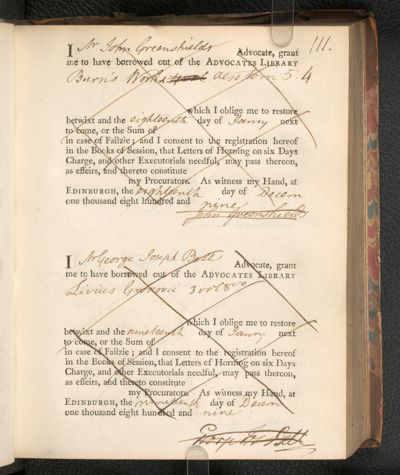 111.
I Mr John Greenshields Advocate, grant
me to have borrowed out of the ADVOCATES LIBRARY
Burn's Works 8vo 5.4
which I oblige me to restore
betwixt and the eighteenth day of Janry next
to come, or the Sum of
in case of Failzie; and I consent to the registration hereof
in the Books of Session, that Letters of Horning on six Days
Charge, and other Executorials needful, may pass thereon,
as effeirs, and thereto constitute
my Procurators. As witness my Hand, at
EDINBURGH, the eighteenth day of Decem
one thousand eight hundred and nine
John Greenshields
I Mr George Joseph Bell Advocate, grant
me to have borrowed out of the ADVOCATES LIBRARY
Livius Gronovii 3 vol 8vo
which I oblige me to restore
betwixt and the nineteenth day of Janry next
to come, or the Sum of
in case of Failzie; and I consent to the registration hereof
in the Books of Session, that Letters of Horning on six Days
Charge, and other Executorials needful, may pass thereon,
as effeirs, and thereto constitute
my Procurators. As witness my Hand, at
EDINBURGH, the nineteenth day of Decem
one thousand eight hundred and nine
George Jos Bell